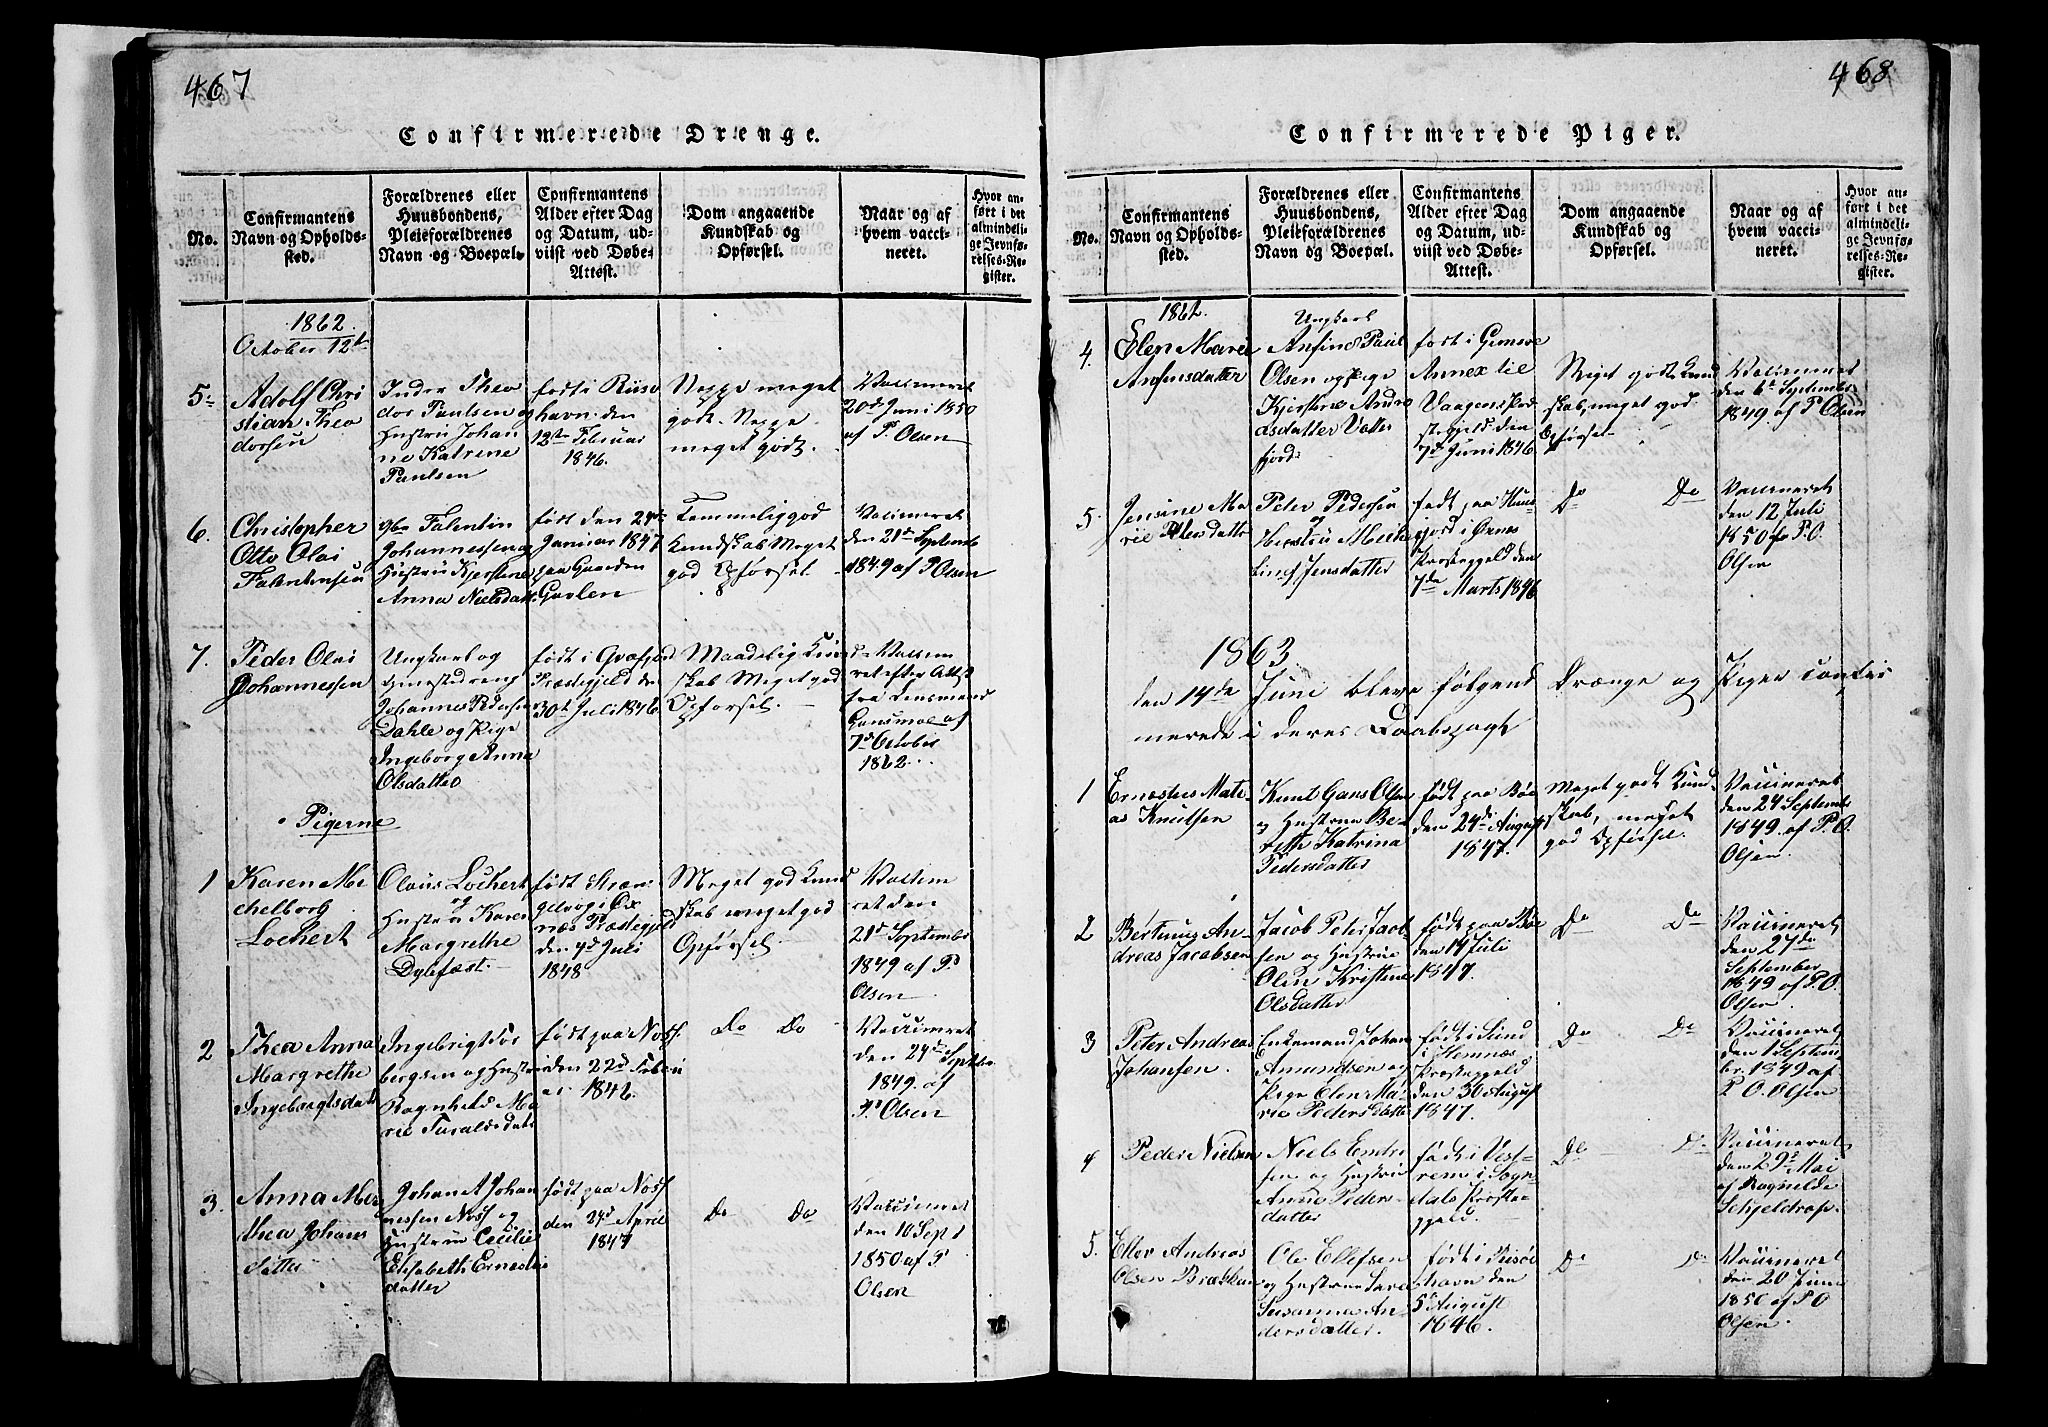 467
Confirmerede Drenge.
No.
Confirmantens
Navn og Opholds-
sted.
Forældrenes eller
Huusbondens,
Pleieforældrenes
Navn og Boepæl.
Confirmantens
Alder efter Dag
og Datum, ud-
viist ved Døbe-
Attest.
Dom angaaende
Kundskab og
Opførsel.
Naar og af
hvem vacci-
neret.
Hvor an-
ført i det
almindeli-
ge Jevnfø-
relses-Re-
gister.
1862.
October 12te
5
Adolf Chri
stian Theo
dorsen
Inder Theo
dor Paulsen og
Hustru Johan
ne Katrine
Paulsen
født i Riisø
havn den
12te Februar
1846.
Neppe meget
godt. Neppe
meget godt.
Vaccineret
20de Juni 1850
af P. Olsen
6.
Christopher
Otto Olai
Falentinsen
Falentin
Johannessen og
Hustru Kjerstine
Anna Nielsdatt.
født den 24de
Januar 1847
paa Gaarden
Temmelig god
Kundskab Meget
god Opførsel.
Vaccineret
den 21de Septemb
1849 af P Olsen
7.
Peder Olai
Johannessen
Ungkarl og
Johannes Pedersen
Dahle og Pige
Ingeborg Anna
Olsdatter
født i
Præstegjeld den
30te Juli 1846
Maadelig Kund-
skab Meget god
Opførsel.
Vaccine
ret efter Attest
fra Lensmand
af
7de October
1862
Pigerne
1
Karen Mi
chelborg
Lockert
Olaus Lockert
og
Hustru Karen
Margrethe
Dylefæst.
født
i Øx
næs Præstegjeld
den 4de Juli
1848
Meget god Kund
skab meget god
Opførsel.
Vaccine
ret den
21de September
1849 af P.
Olsen
2
Thea Anna
Margrethe
Ingebrigtsdatt
Ingebrigt Tor
bergsen og Hustru
Ragnhild Ma
rie
født paa Noss
den 22de Febru
ar 1846
Do Do
Vaccineret
den 24de Septbr
1849. af
P Olsen
3.
Anna Mar
thea Johans
datter
Johan A Johan
nessen Noss og
Hustru Cecilie
Elisabeth
datter
født paa Noss
den 24de April
1847
Do Do
Vaccineret
den 10 Sept
1850 af P
Olsen
468
Confirmerede Piger.
No.
Confirmantens
Navn og Opholds-
sted.
Forældrenes eller
Huusbondens,
Pleieforældrenes
Navn og Boepæl.
Confirmantens
Alder efter Dag
og Datum, ud-
viist ved Døbe-
Attest.
Dom angaaende
Kundskab og
Opførsel.
Naar og af
hvem vacci-
neret.
Hvor an-
ført i det
almindeli-
ge Jevnfø-
relses-Re-
gister.
1862.
4.
Elen Marie
Anfinsdatter
Ungkarl
Anfind Paul
Olsen og Pige
Kjerstine Andre
asdatter Vatter
fjord
født i Gimsø
Annex til
Vaagens Præ
stegjeld den
7de Juni 1846
Meget godt Kund
skab, meget god
Opførsel
Vaccineret
den 6te Septembr
1849. af P Olsen
5.
Jensine Ma
rie Petersdatter
Peter Pedersen
og
Hustru
Jensdatter
født paa
fjord i Øxnes
Præstegjeld den
7de Marts 1846
Do Do
Vaccineret
den 12 Juli
1850 af P. O.
Olsen
1863.
den 14de Juni bleve følgende Drænge og Piger confir
merede i deres Daabspagt
1
Ernestus Mati-
as Knutsen
Knut Hans Olsen
og Hustrue Be-
rette Katrina
Pedersdatter
født paa Bøe
den 24de August
1847.
Meget godt Kund-
skab, meget
god Opførsel.
Vaccineret
den 24 Septembr
1849. af P. O.
Olsen.
2
Bertinus An-
dreas Jacobsen
Jacob Peter Jacob
sen og Hustrue
Olin Kristine
Olsdatter
født paa Bøe
den 14 Juli
1847.
Do Do
Vaccineret
den 27de
September
1849 af P. O.
Olsen
3
Peter Andreas
Johansen.
Enkemand Johan
Amundsen og
Pige Elen Ma-
rie Pedersdatter
født i Sund
i Hemnæs
Præstegjeld
den 30 August
1847.
Do Do
Vaccineret
den 1 Septem
br. 1849 af
P. O. Olsen
4
Peder Nielsen
Niels Endri
sen og Hustrue
Anne Peders
datter
født i Vest-
rem i Sogn-
dals Præste-
gjeld.
Do Do
Vaccineret
den 29de Mai
af Ragnilde
Schjeldrop.
5.
Ellef Andreas
Olsen
Ole Ellefsen
og Hustrue Sara
Susanna An-
dersdatter.
født i Risø
havn den
5te August
1846.
Do Do
Vaccineret
den 20 Juni
1850 af P. O
Olsen